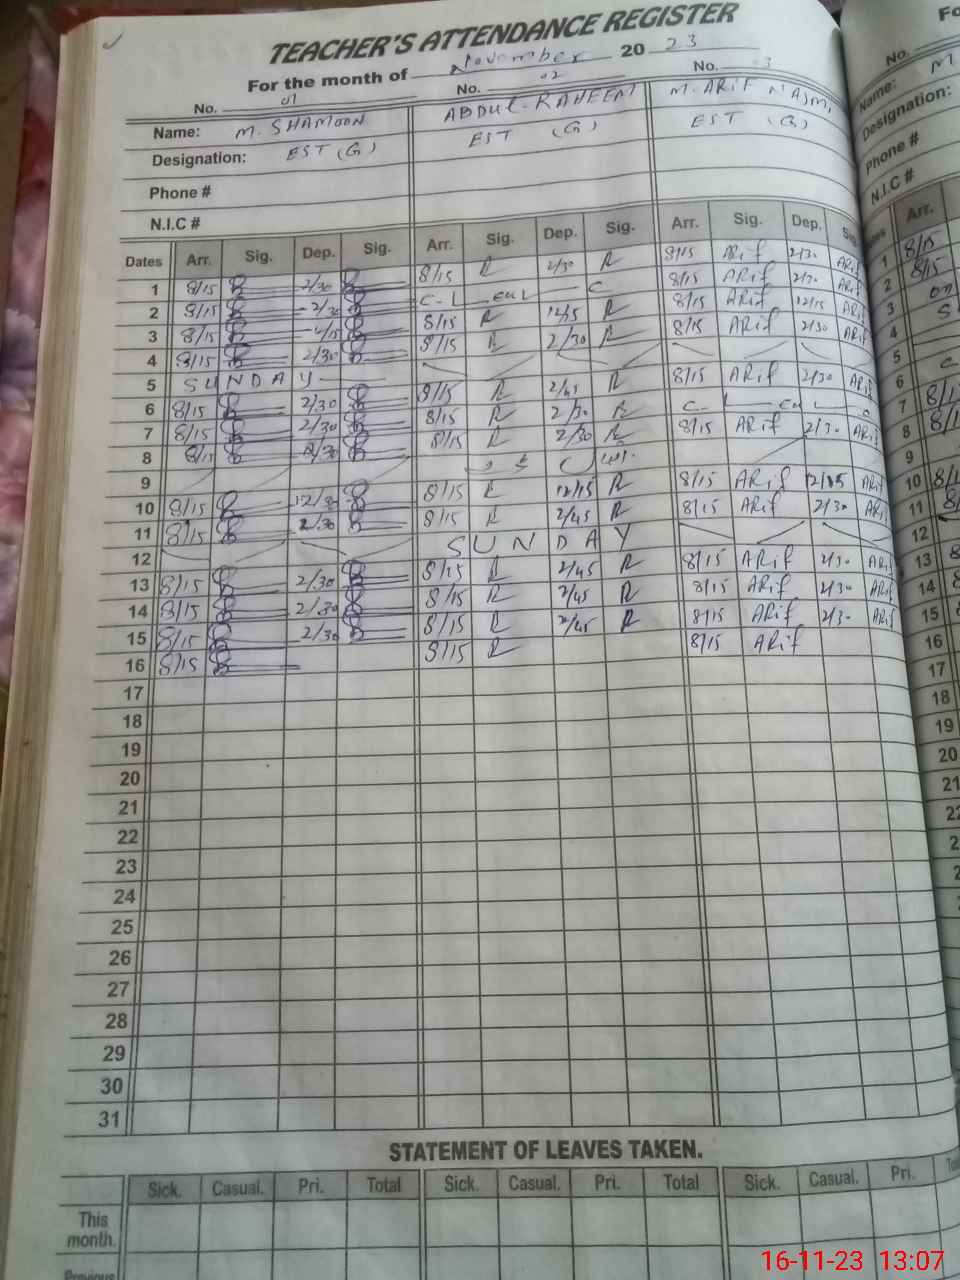 TEACHER'S ATTENDANCE REGISTER
For the month of November 20 23
No. 01 No. 02 No. 03
Name: M. SHAMOON ABDUL-RAHEEM M. ARIF NAJMI
Designation: EST (G) EST (G) EST (G)
Phone #
N.I.C #
Dates Arr. Sig. Dep. Sig. Arr. Sig. Dep. Sig. Arr. Sig. Dep. Sig.
1 8/15 2/30 8/15 R 2/30 R 8/15 ARif 2/30 ARif
2 8/15 2/30 C-L C 8/15 ARif 2/30 ARif
3 8/15 8/15 R R 8/15 ARif 12/15 ARif
4 8/15 2/30 8/15 R 2/30 R 8/15 ARif 2/30 ARif
5 SUNDAY
6 8/15 2/30 8/15 R 2/45 R 8/15 ARif 2/30 ARif
7 8/15 2/30 8/15 R 2/30 R C-L
8 8/15 2/30 8/15 R 2/30 R 8/15 ARif 2/30 ARif
9
10 8/15 8/15 R 12/15 R 8/15 ARif 12/15 ARif
11 8/15 2/30 8/15 R 2/45 R 8/15 ARif 2/30 ARif
12 SUNDAY
13 8/15 2/30 8/15 R 2/45 R 8/15 ARif 2/30 ARif
14 8/15 2/30 8/15 R 2/45 R 8/15 ARif 2/30 ARif
15 8/15 2/30 8/15 R 2/45 R 8/15 ARif 2/30 ARif
16 8/15 8/15 R 8/15 ARif
17
18
19
20
21
22
23
24
25
26
27
28
29
30
31
STATEMENT OF LEAVES TAKEN.
Sick. Casual. Pri. Total Sick. Casual. Pri. Total Sick. Casual. Pri.
This
month.
Previous
No.
Name: M
Designation:
Phone #
N.I.C #
Arr.
1 8/15
2 8/15
3
4
5
6
7
8
9
10
11
12
13
14
15
16
17
18
19
20
21
16-11-23 13:07